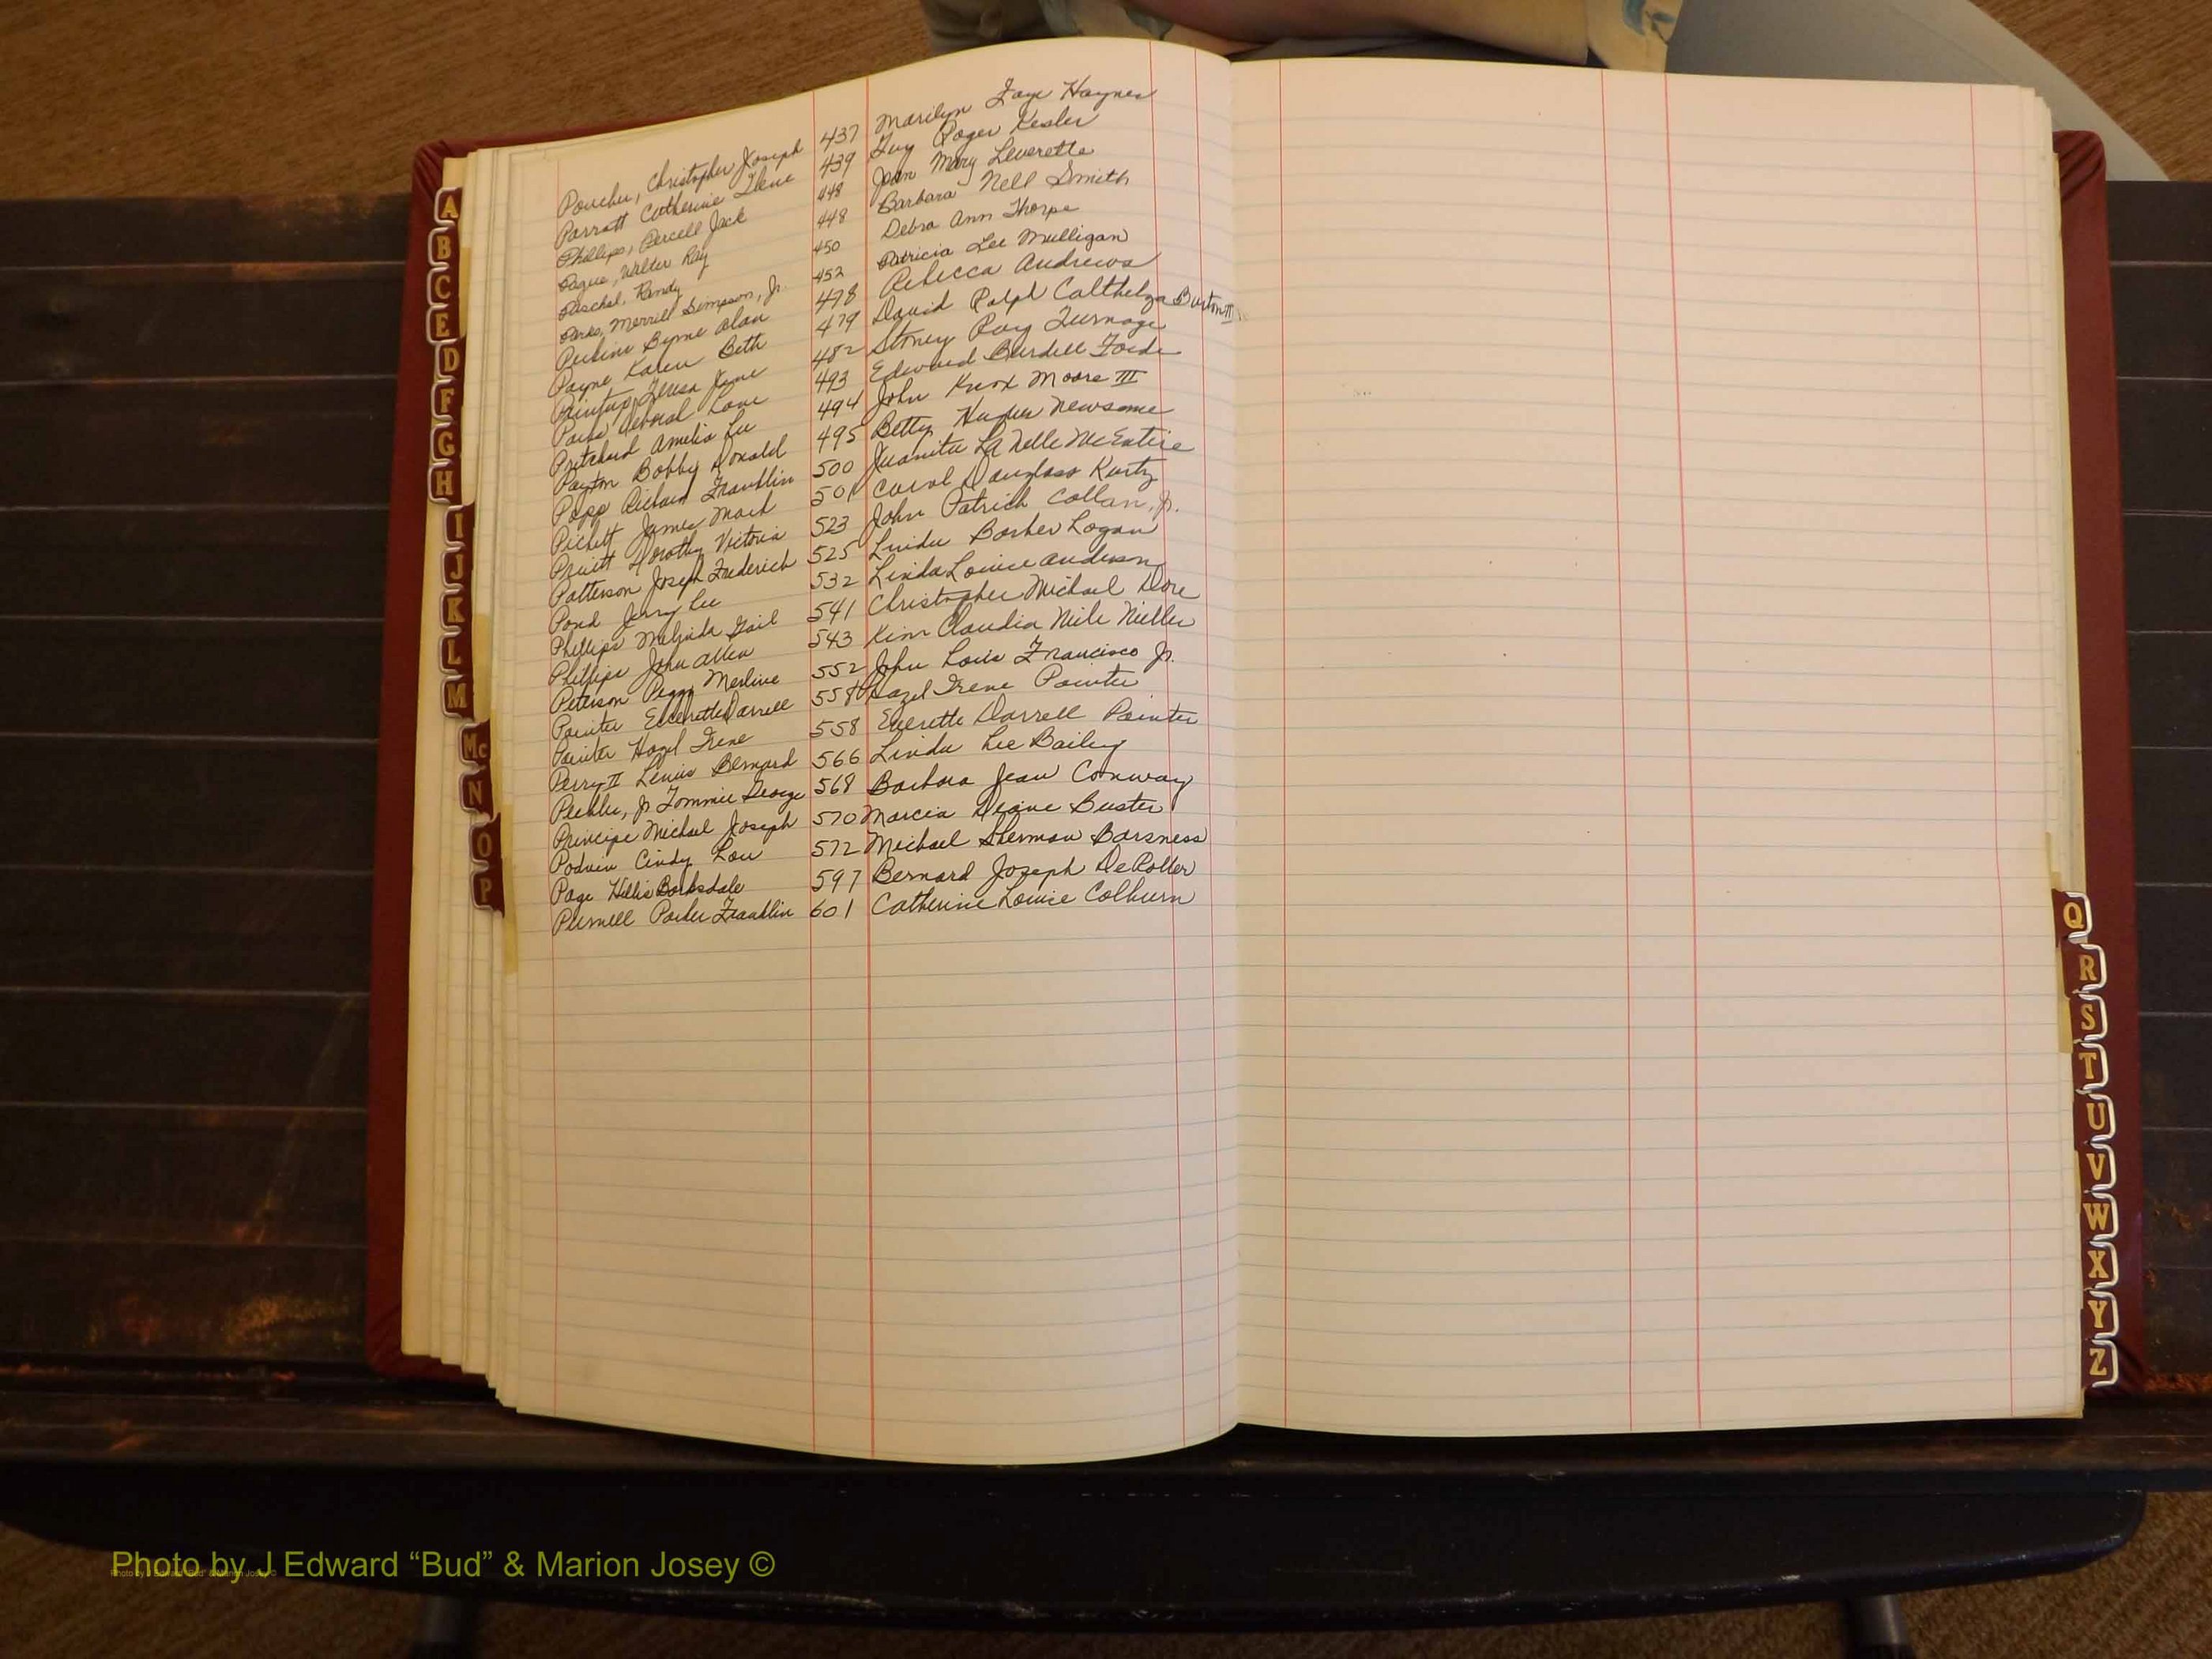 Poucher, Christopher Joseph 437 Marilyn Faye Haynes
Parrott Catherine Ilene 439 Guy Roger Kesler
Phillips, Percell Jack 448 Joan Mary Leverette
Pague, Walter Ray 448 Barbara Nell Smith
Paschal, Randy 450 Debra Ann Thorpe
Parks, Merrill Simpson, Jr. 452 Patricia Lee Mulligan
Perkins Byrne Alan 478 Rebecca Andrews
Payne Karen Beth 479 David Ralph Burton II
Printup, Teresa Jane 482 Stoney Ray Turnage
Parks Love 493 Edward Burdell Foede
Pritchard Amelia Lee 494 John Knox Moore III
Payton Bobby Donald 495 Betty Newsome
Popp Richard Franklin 500 Juanita La Nelle McEntire
Pickett James Mark 501 Carol Douglass Kurtz
Pruitt Dorothy Victoria 523 John Patrick Collan, Jr.
Patterson Joseph Frederick 525 Linda Barber Logan
Pond Jerry Lee 532 Linda Louise Anderson
Phillips Melinda Gail 541 Christopher Michael Dore
Phillips John Allen 543 Kim Claudia
Peterson Peggy Merline 552 John Louis Francisco Jr.
Painter Everette Darrell 558 Hazel Irene Painter
Painter Hazel Irene 558 Everette Darrell Painter
Perry II Lewis Bernard 566 Linda Lee Bailey
Peebles, Jr Tommie George 568 Barbara Jean Conway
Principe Michael Joseph 570 Marcia Deane Buster
Podvin Cindy Lou 572 Michael Sherman Barsness
Page Hillis Barksdale 597 Bernard Joseph DePotter
Purnell Parker Franklin 601 Catherine Louise Colburn
A
B
C
E
D
F
G
H
I
J
K
L
M
Mc
N
O
P
Q
R
S
T
U
V
W
X
Y
Z
Photo by J Edward “Bud” & Marion Josey ©
Photo by J Edward "Bud" & Marion Josey ©